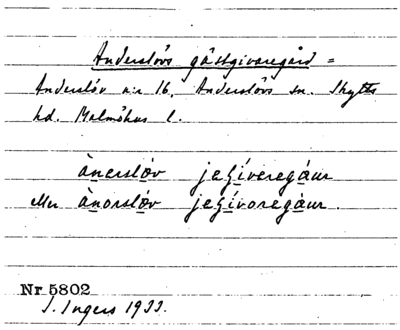 Anderslövs gästgivaregård =
Anderslöv n:r 16, Anderslövs sn. Skytts
hd. Malmöhus l.
ànerslǫv jeʂíveregáur
eller ànorslǫv jeʂívoregáur.
Nr 5802
I. Ingers 1933.